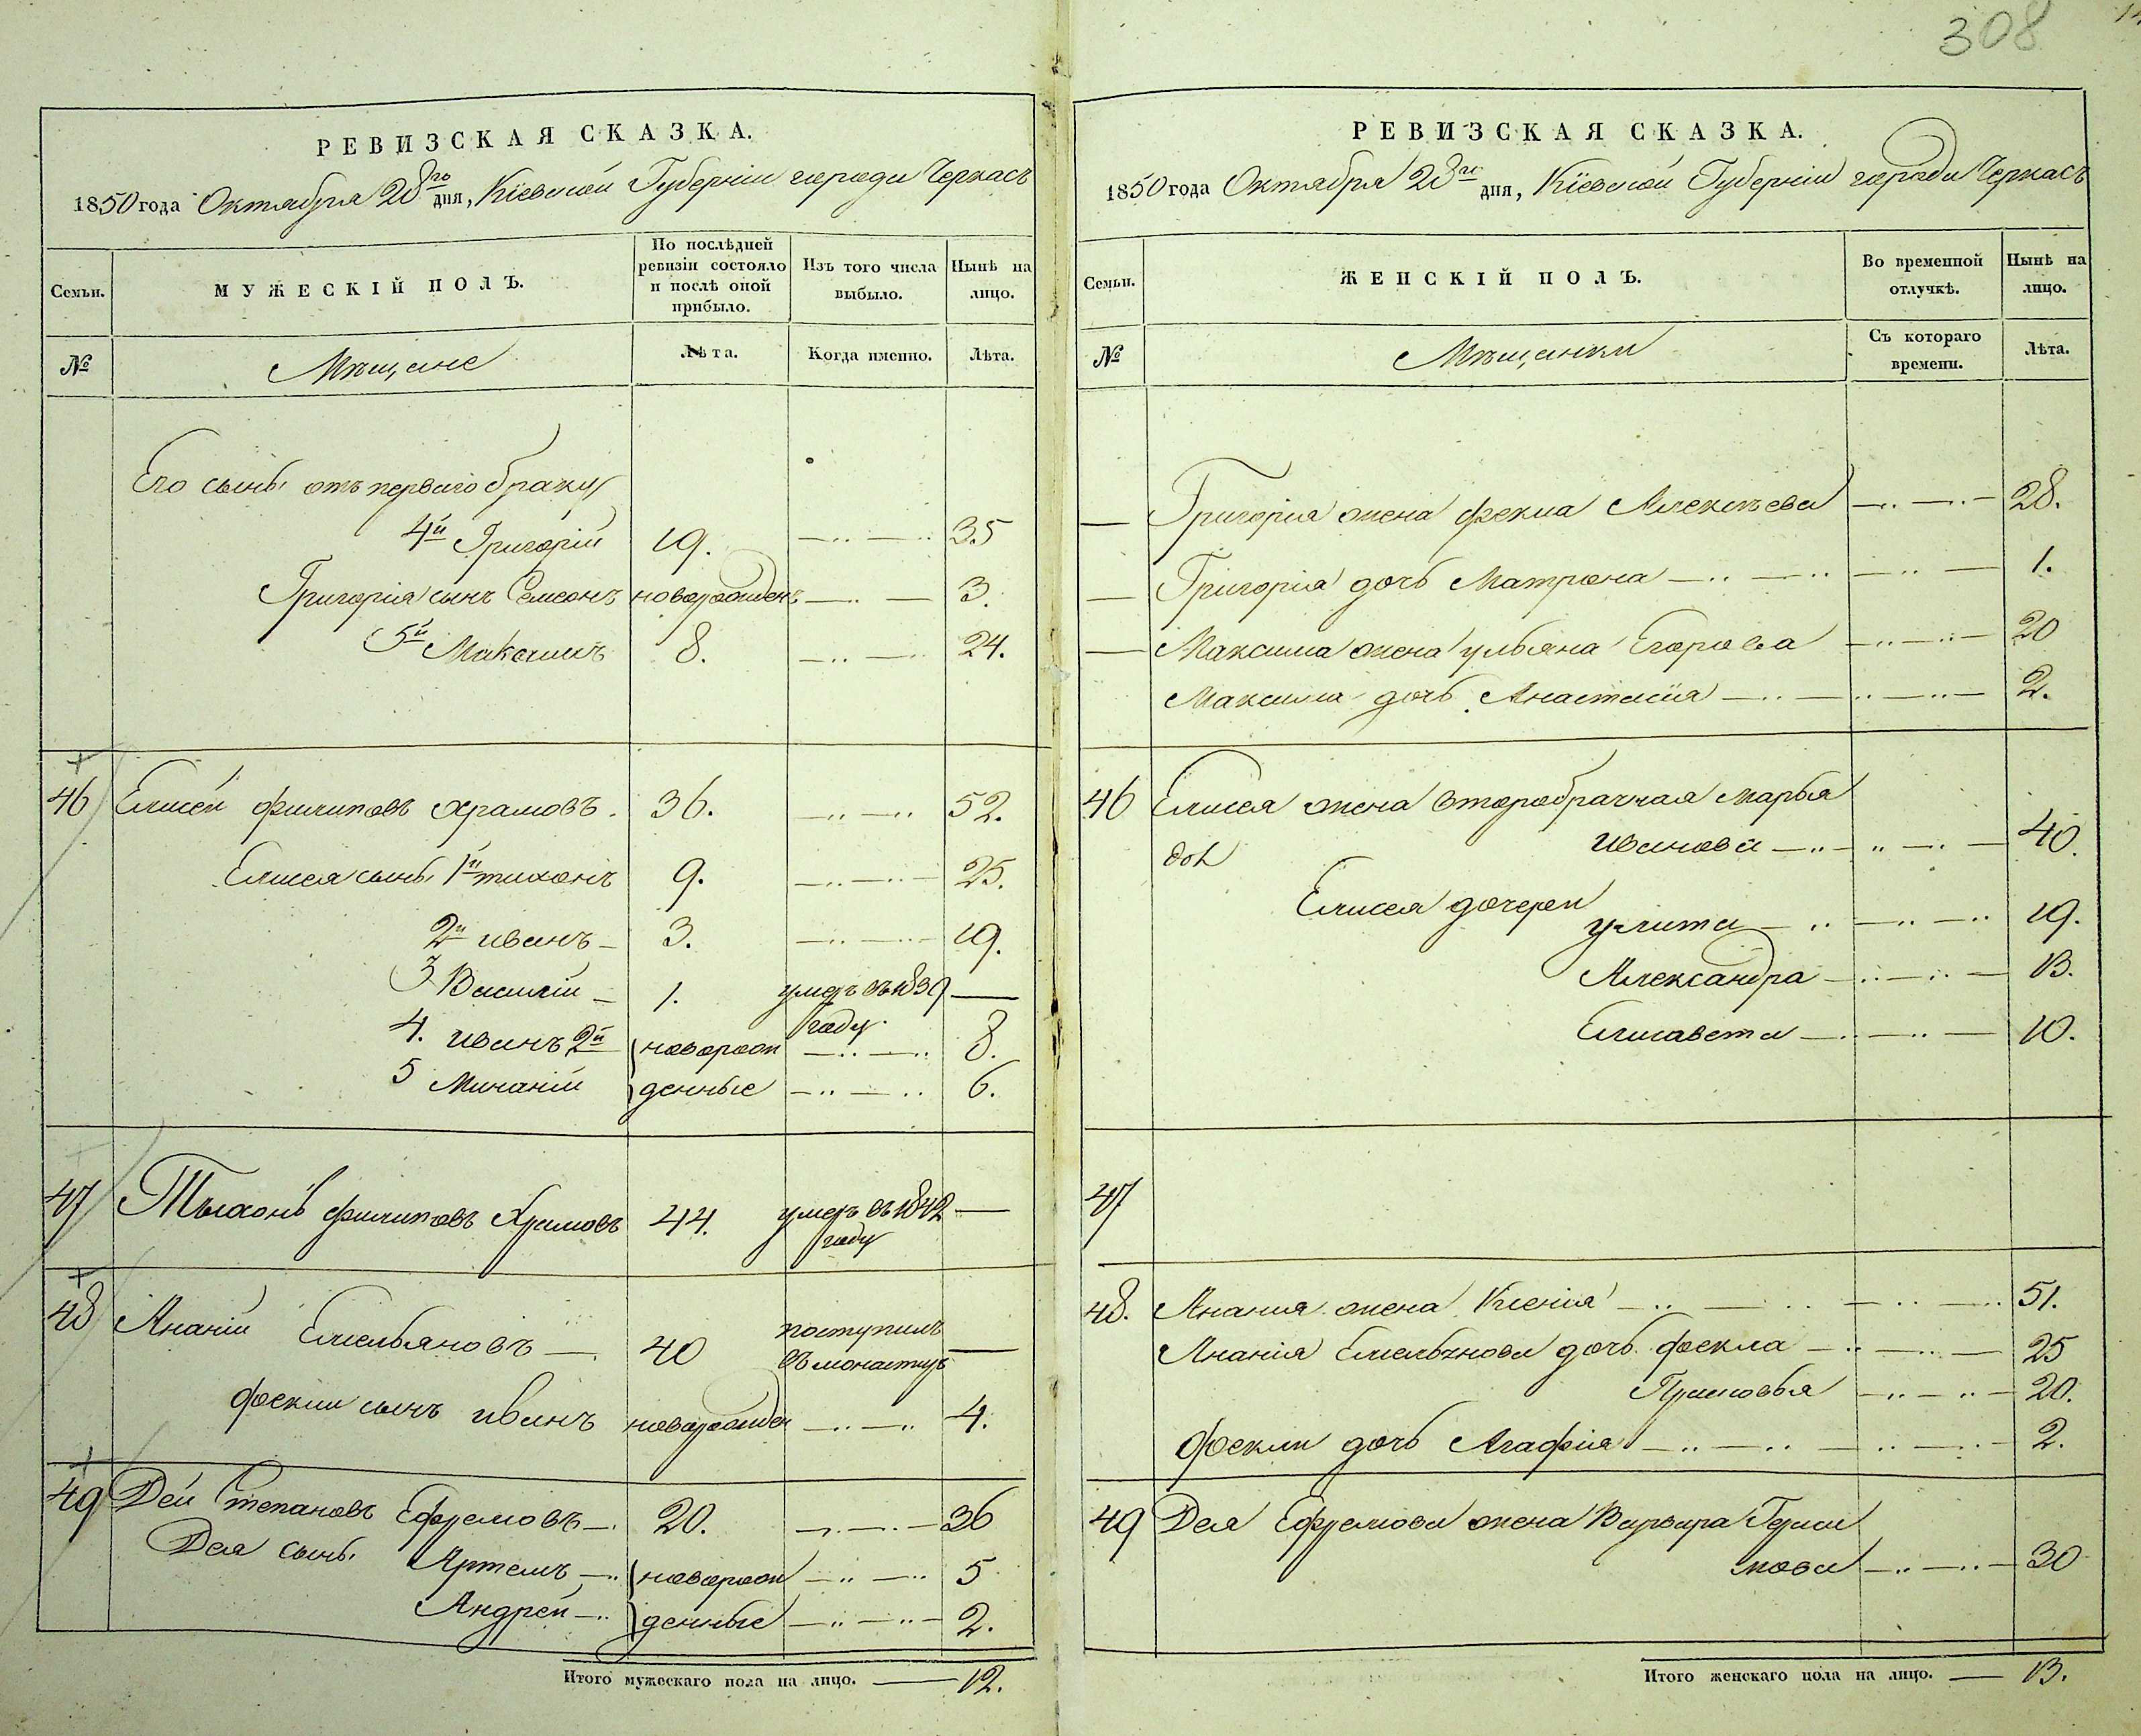 308
РЕВИЗСКАЯ СКАЗКА.
1850 года Октября 28го дня, Кіевской Губерніи города Черкасъ
Семьи.
МУЖЕСКІЙ ПОЛЪ.
По послѣдней ревизіи состояло и послѣ оной прибыло.
Изъ того числа выбыло.
Нынѣ на лицо.
№
Мѣщане
Лѣта.
Когда именно.
Лѣта.
Его сыны отъ перваго браку
4й Григорій 19. 35
Григорія сынъ Самсонъ новорожденъ 3.
5й Максимъ 8. 24.
46 Елисей Филиповъ Храмовъ. 36. 52.
Елисея сыны 1й Тихонъ 9. 25.
2й Иванъ 3. 19.
3 Василій 1. умеръ въ 1839 —
году
4. Иванъ 2й новорож 8.
5 денные 6.
47 Филиповъ Храмовъ 44. умеръ въ 1842 —
году
48 Ананій Емельяновъ — 40 поступилъ —
въ монастырь
Феклы сынъ Иванъ новорожден 4.
49 Дей Степановъ Ефремовъ 20. 36
Дея сыны Артемъ новорож 5
Андрей денные 2.
Итого мужескаго пола на лицо. — 12.
РЕВИЗСКАЯ СКАЗКА.
1850 года Октября 28го дня, Кіевской Губерніи города Черкасъ
Семьи.
ЖЕНСКІЙ ПОЛЪ.
Во временной отлучкѣ.
Нынѣ на лицо.
№
Мѣщанки
Съ котораго времени.
Лѣта.
— Григорія жена Фекла Алексѣева 28.
— Григорія дочь Матрона 1.
— Максима жена Ульяна Егорова 20
Максима дочь Анастасія 2.
46 Елисея жена второбрачная Марья
Иванова 40.
Елисея дочери
Улита 19.
Александра 13.
Елисавета 10.
47
48. Ананія жена Ксенія 51.
Ананія Емельянова дочь Фекла 25
Прасковья 20.
Феклы дочь Агафія 2.
49 Дея Ефремова жена Варвара Гераси
мова 30
Итого женскаго пола на лицо. — 13.